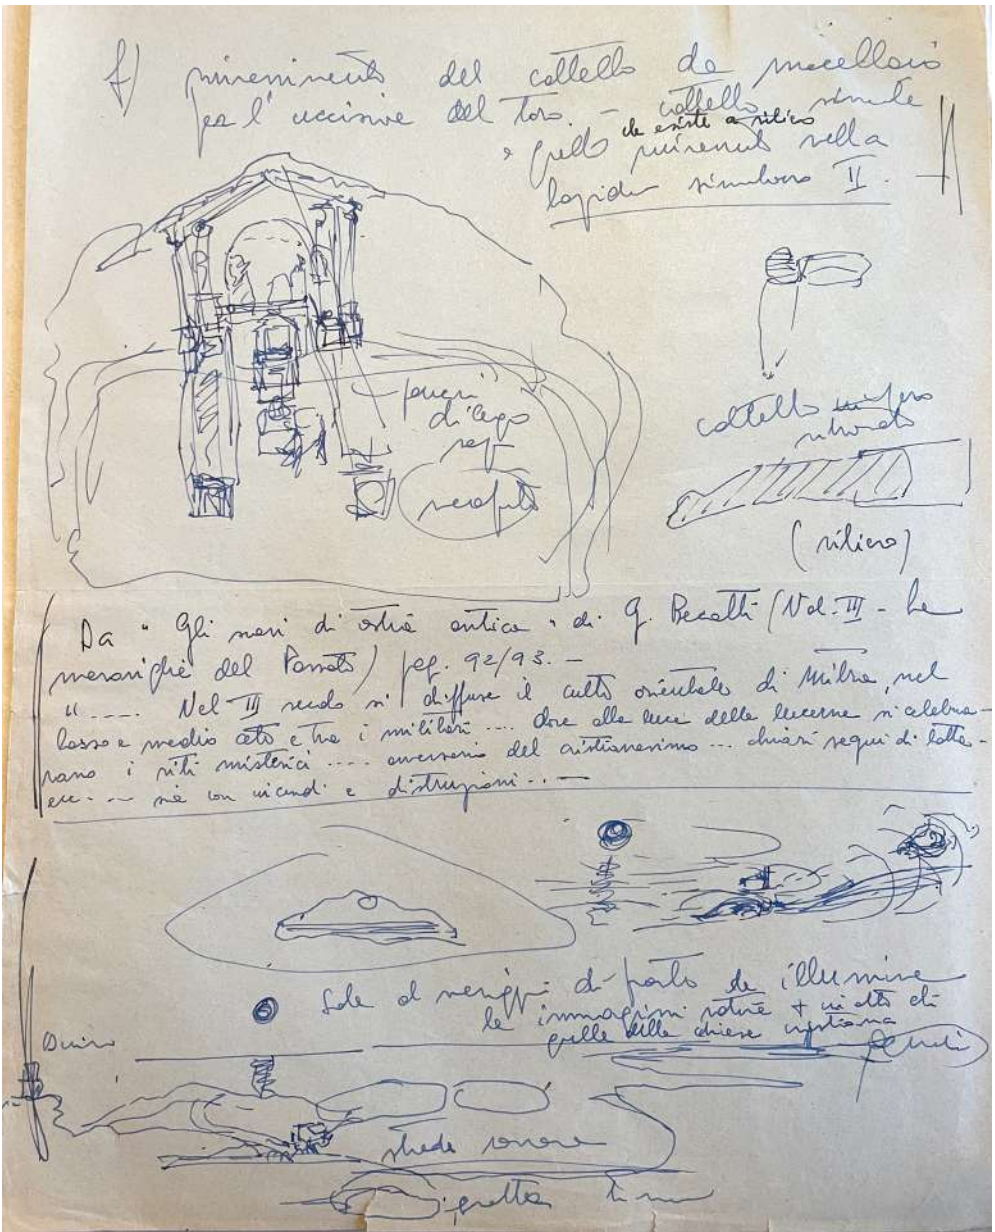 f) rinvenimento del coltello da macellaio
per l'uccisione del toro. — coltello simile
a quello che esiste a rilievo rinvenuto nella
lapide simulacro II.
coltello in ferro
ritrovato
(rilievo)
Da "Gli scavi di ostia antica" di G. Becatti (Vol. III - Le
meraviglie del Passato) pag. 92/93. —
".... Nel III secolo si diffuse il culto orientale di Mitra, nel
basso e medio ceto e tra i militari .... dove alla luce delle lucerne si celebra-
vano i riti misterici .... avversario del cristianesimo ... chiari segni di lotta -
ecc. ... sia con incendi e distruzioni ... —
Sole al meriggio di
da illumina
le immagini
+ in alto di
quelle delle chiese cristiana
Duino
strada romana
grotta